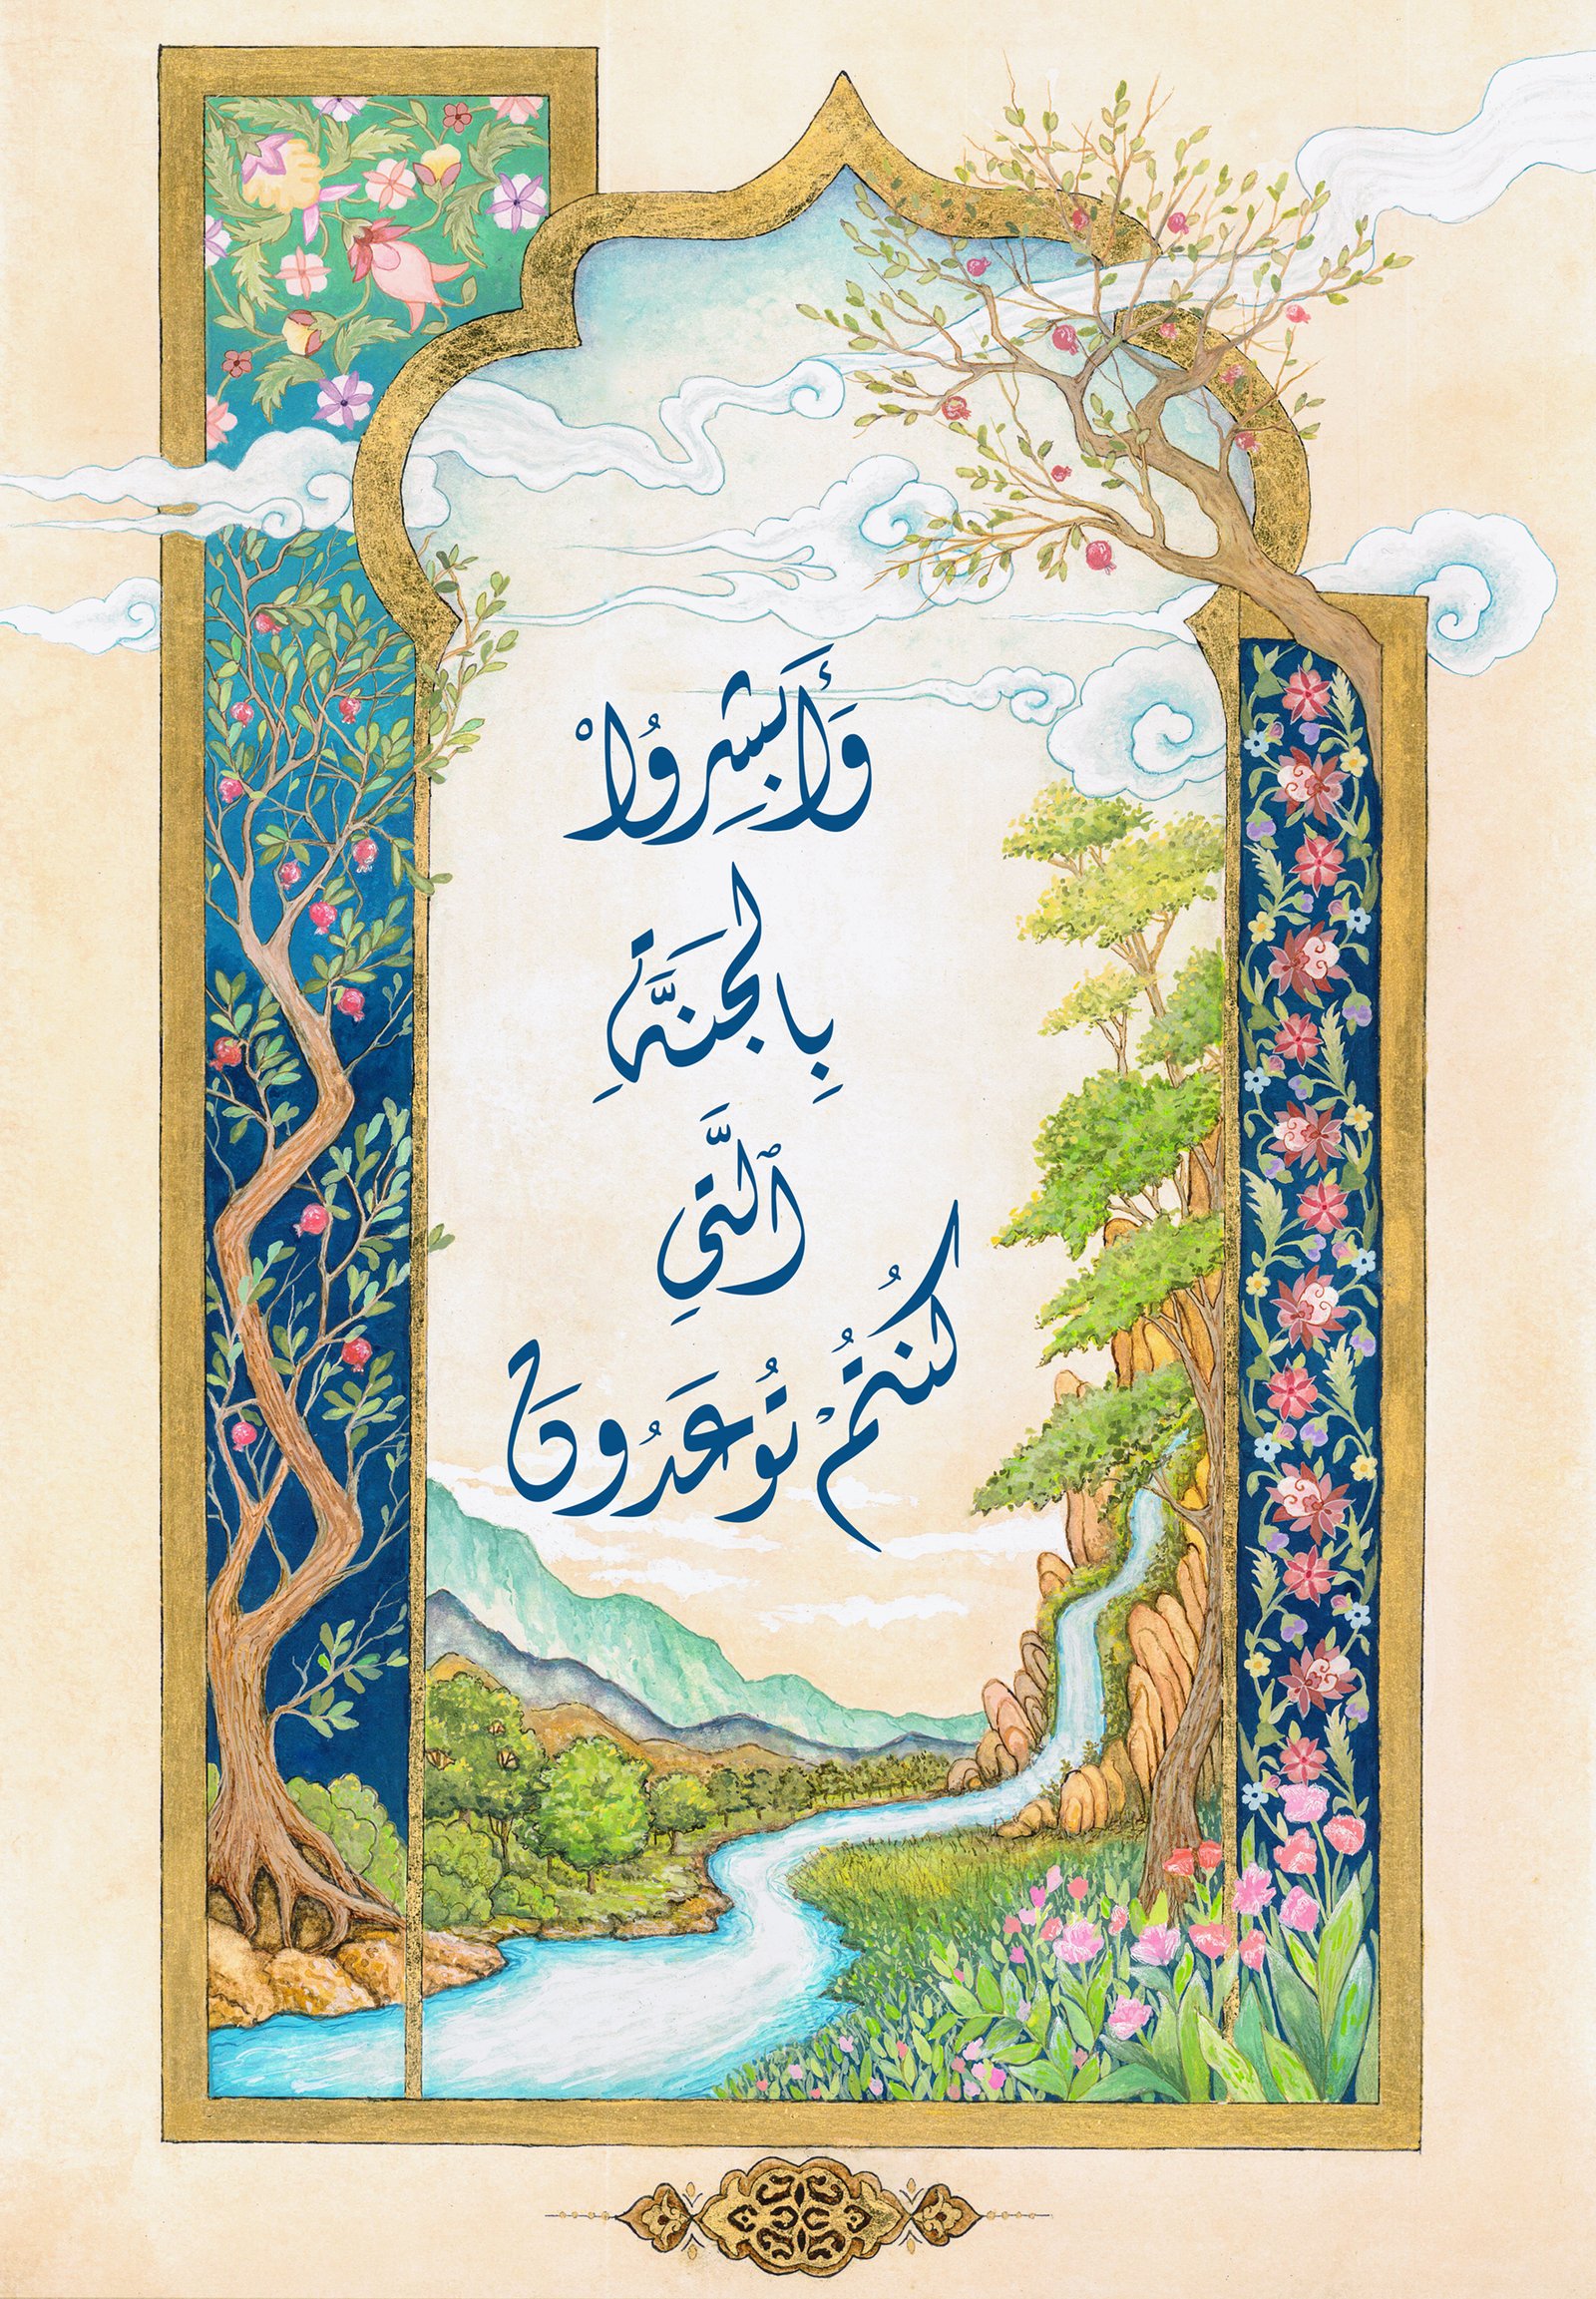 وَأَبْشِرُوا۟
بِالْجَنَّةِ
ٱلَّتِي
كُنتُمْ تُوعَدُونَ